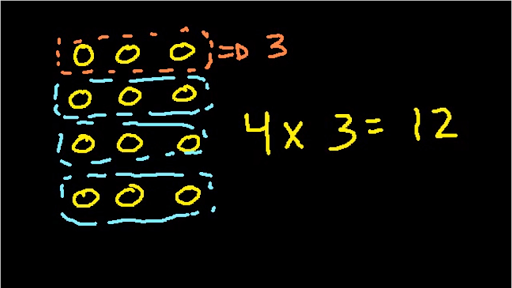 ⇒ 3
4 x 3 = 12